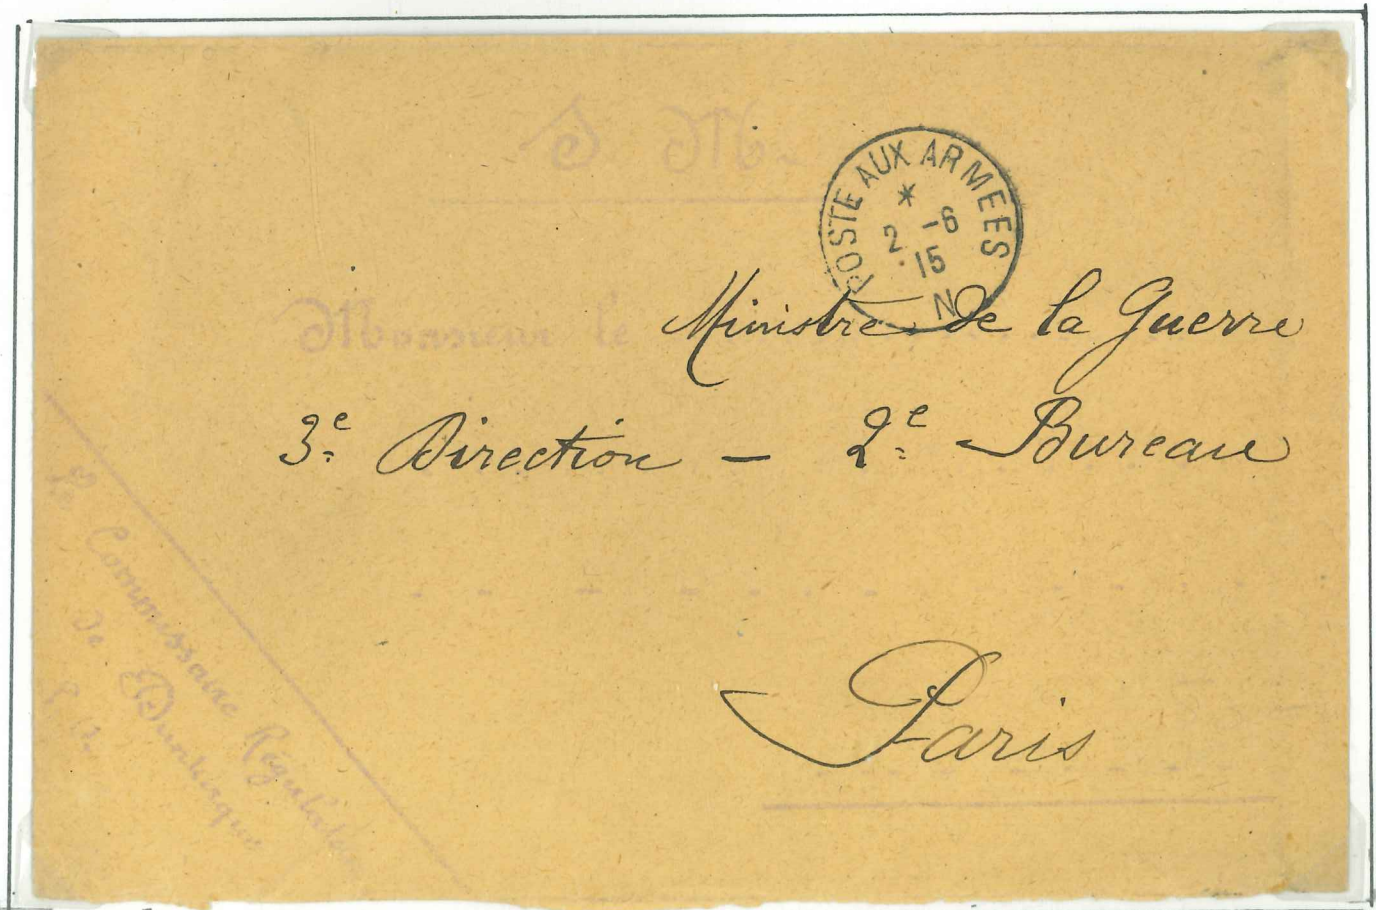 S. M.
POSTE AUX ARMEES
*
2 -6
15
N
Monsieur le Ministre de la Guerre
3e Direction - 2e Bureau
Paris
Le Commissaire Régulateur
de Dunkerque